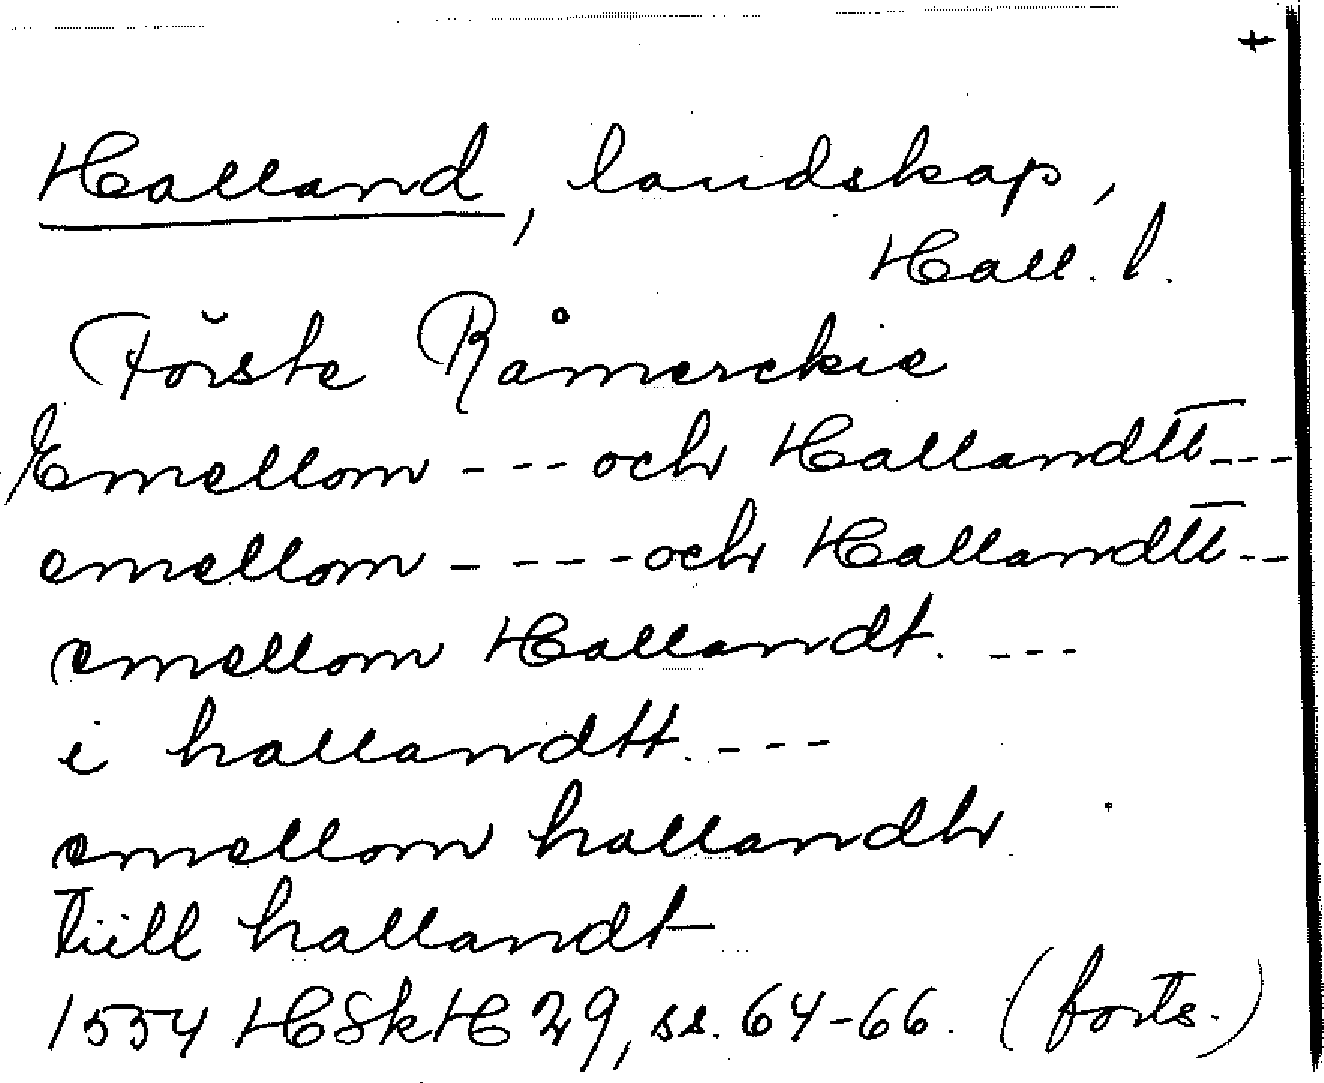 +
Halland, landskap,
Hall. l.
Förste Råmerckie
Emellom --- och Hallandtt ---
emellom ---- och Hallandtt --
emellom Hallandt. ---
i hallandtt. ---
emellom hallandh
tiill hallandt
1554 HSkH 29, ss. 64-66. (forts.)